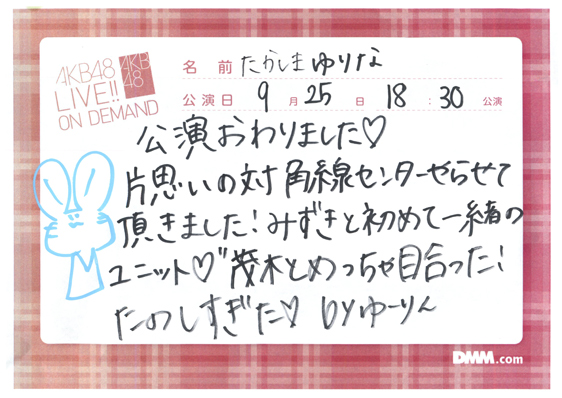 AKB48
LIVE!!
ON DEMAND
AKB
48
名前 たかしまゆりな
公演日 9月25日 18:30 公演
公演おわりました♡
片思いの対角線センターやらせて
頂きました!みずきと初めて一緒の
ユニット♡"茂木とめっちゃ目合った!
たのしすぎた♡ byゆーりん
DMM.com